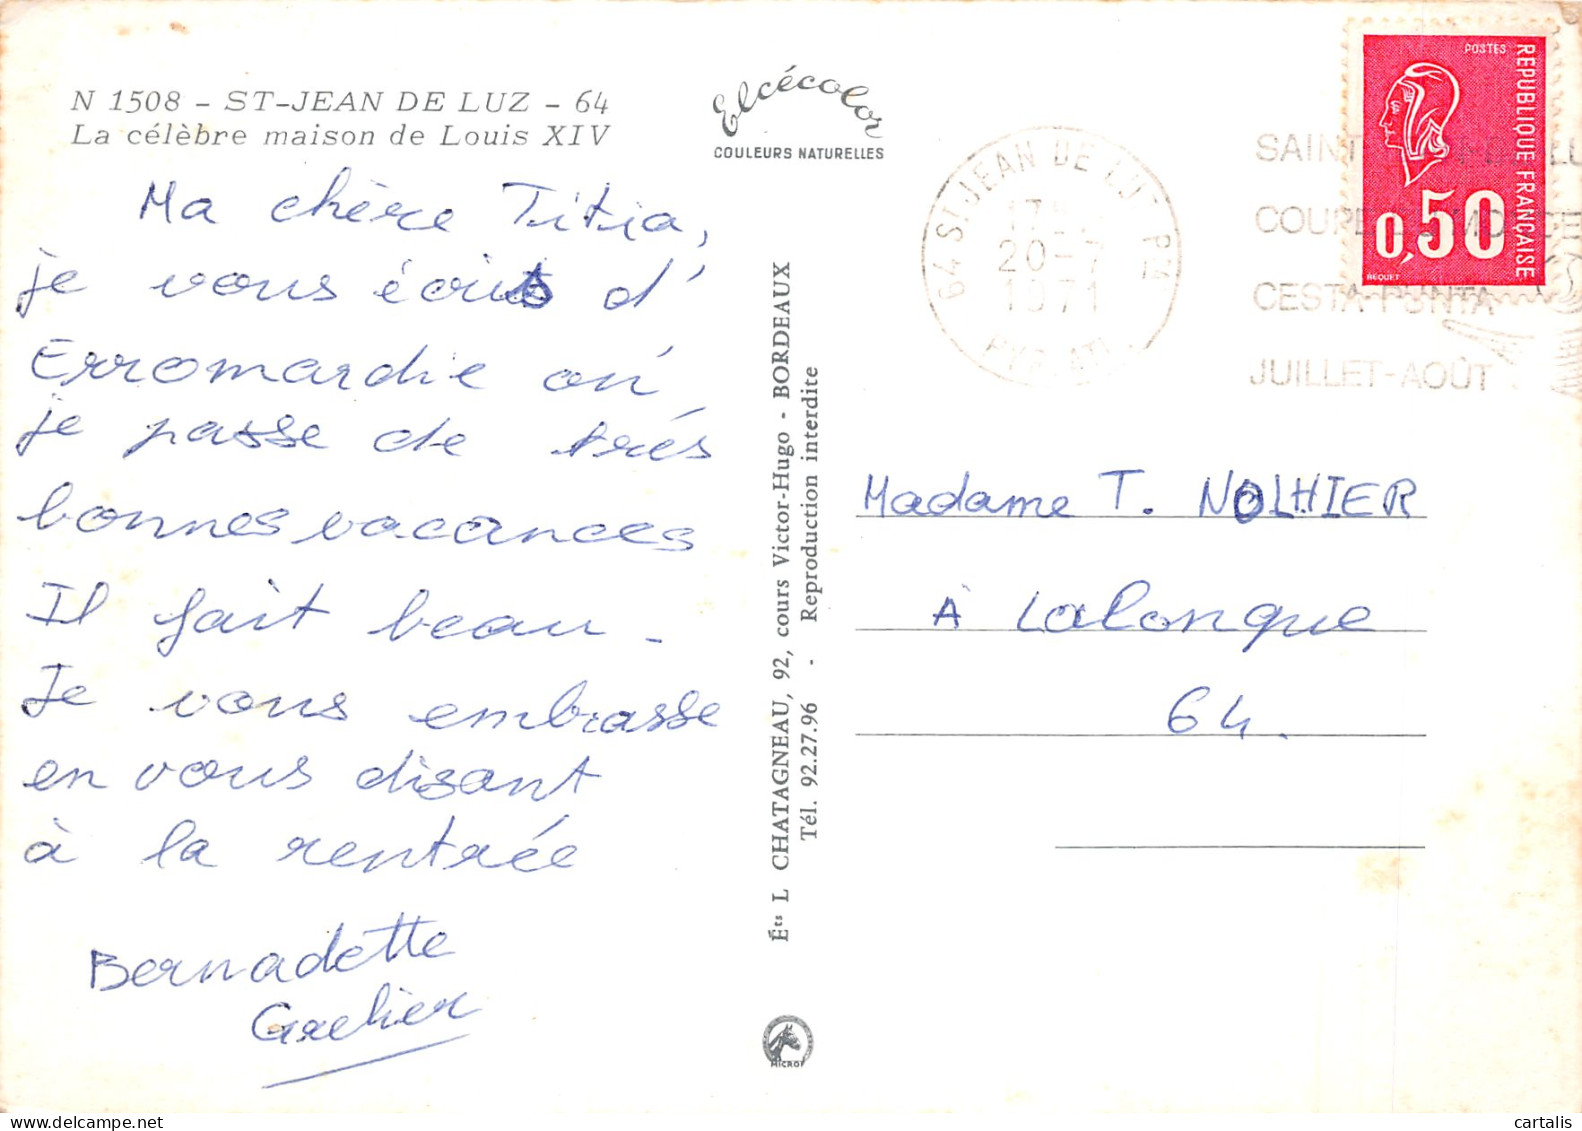 N 1508 - ST-JEAN DE LUZ - 64
La célèbre maison de Louis XIV
Ma chère Titia,
je vous écris d'
Erromardie où
je passe de très
bonnes vacances
Il fait beau -
Je vous embrasse
en vous disant
à la rentrée
Bernadette
Grelier
Elcécolor
COULEURS NATURELLES
Éts L CHATAGNEAU, 92, cours Victor-Hugo - BORDEAUX
Tél. 92.27.96 - Reproduction interdite
MICROF
64 ST-JEAN DE LUZ
20-7
1971
SAINT
COUPE
CESTA PUNTA
JUILLET-AOÛT
POSTES
REPUBLIQUE FRANÇAISE
0,50
BEQUET
Madame T. NOLHIER
À Lalonque
64.
cartalis